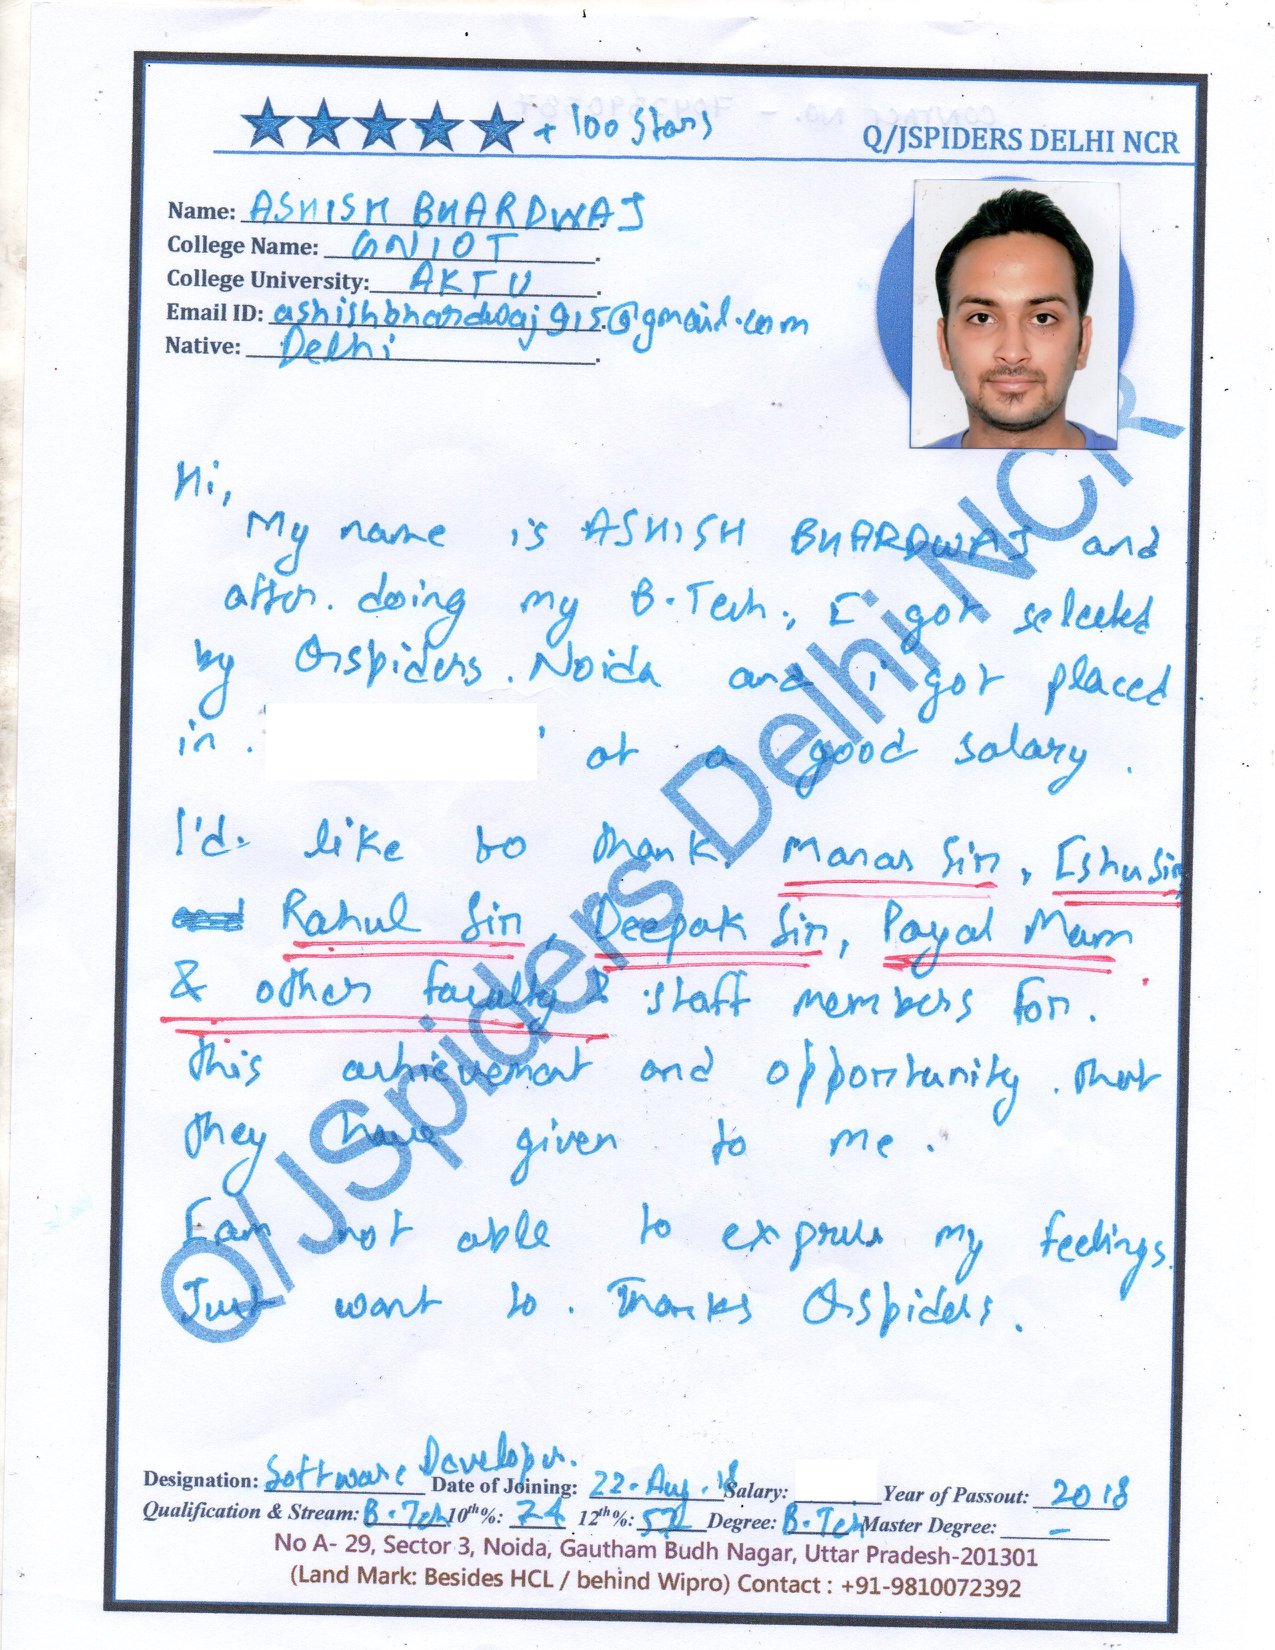 + 100 Stars
Q/JSPIDERS DELHI NCR
Name: ASHISH BHARDWAJ
College Name: GNIOT
College University: AKTU
Email ID: ashishbhardwaj915@gmail.com
Native: Delhi
Hi,
My name is ASHISH BHARDWAJ and
after. doing my B.Tech., I got selected
by Qspiders. Noida and i got placed
in . at a good salary.
I'd. like to thank. Manas Sir, Eshu Sir,
Rahul Sir, Deepak Sir, Payal Mam
& other faculty & staff members for.
this achievement and opportunity. that
they have given to me.
I am not able to express my feelings.
Just want to. Thanks Qspiders.
Q/JSpiders Delhi NCR
Designation: Software Developer. Date of Joining: 22-Aug-18 Salary: Year of Passout: 2018
Qualification & Stream: B.Tech 10th%: 74 12th%: Degree: B.Tech Master Degree: -
No A- 29, Sector 3, Noida, Gautham Budh Nagar, Uttar Pradesh-201301
(Land Mark: Besides HCL / behind Wipro) Contact : +91-9810072392